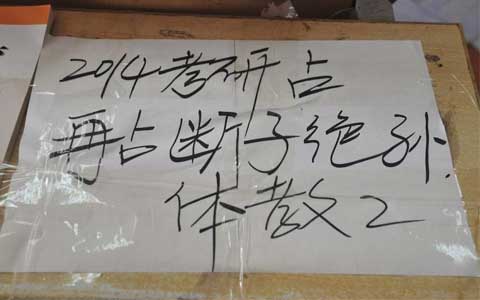 2014考研占
再占断子绝孙.
体教2